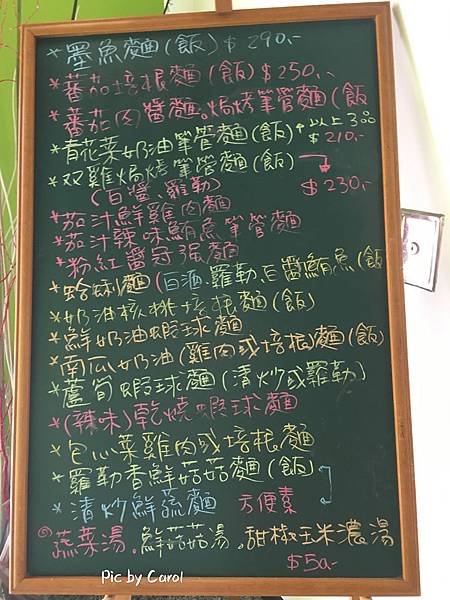 *墨魚麵(飯)$290.-
*蕃茄培根麵(飯)$250.-
*蕃茄肉醬麵。焗烤筆管麵(飯
*青花菜奶油筆管麵(飯)↑以上3品
$210.-
*双雞焗烤筆管麵(飯)
(白醬.羅勒)
$230.-
*茄汁鮮雞肉麵
*茄汁辣味鮪魚筆管麵
*粉紅醬
*蛤蜊麵(白酒.羅勒)白醬鮪魚(飯
*奶油核桃培根麵(飯)
*鮮奶油蝦球麵
*南瓜奶油(雞肉或培根)麵(飯)
*蘆筍蝦球麵(清炒或羅勒)
*(辣味)乾燒蝦球麵
*包心菜雞肉或培根麵
*羅勒香鮮菇菇麵(飯)
*清炒鮮蔬麵 方便素
◎蔬菜湯。鮮菇菇湯。甜椒玉米濃湯
$50.-
Pic by Carol